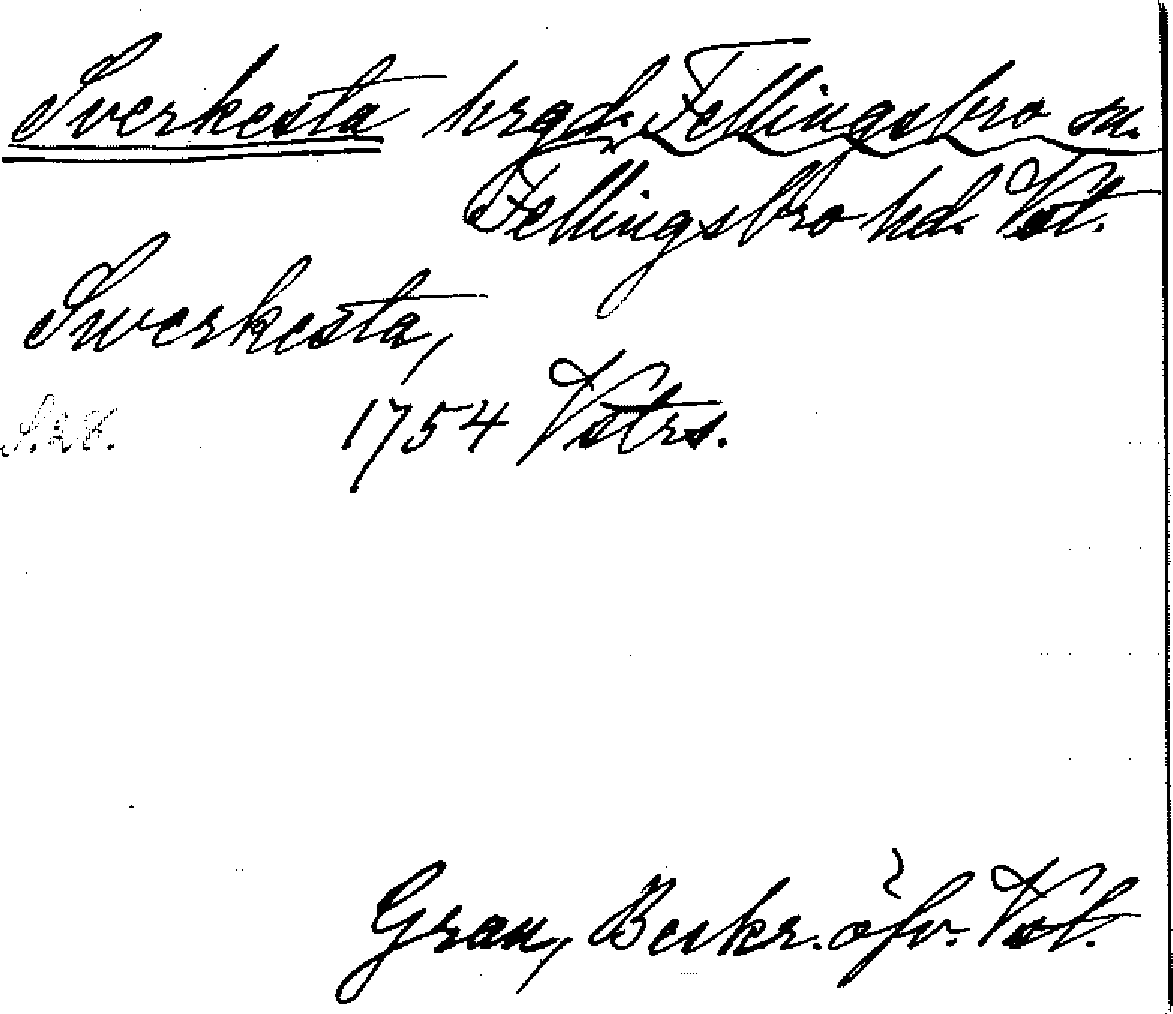 Sverkesta hrgd. Fellingsbro sn.
Fellingsbro hd. Vst.
Swerkesta,
1754 Vstrs.
Grau, Beskr. öfv. Vst.